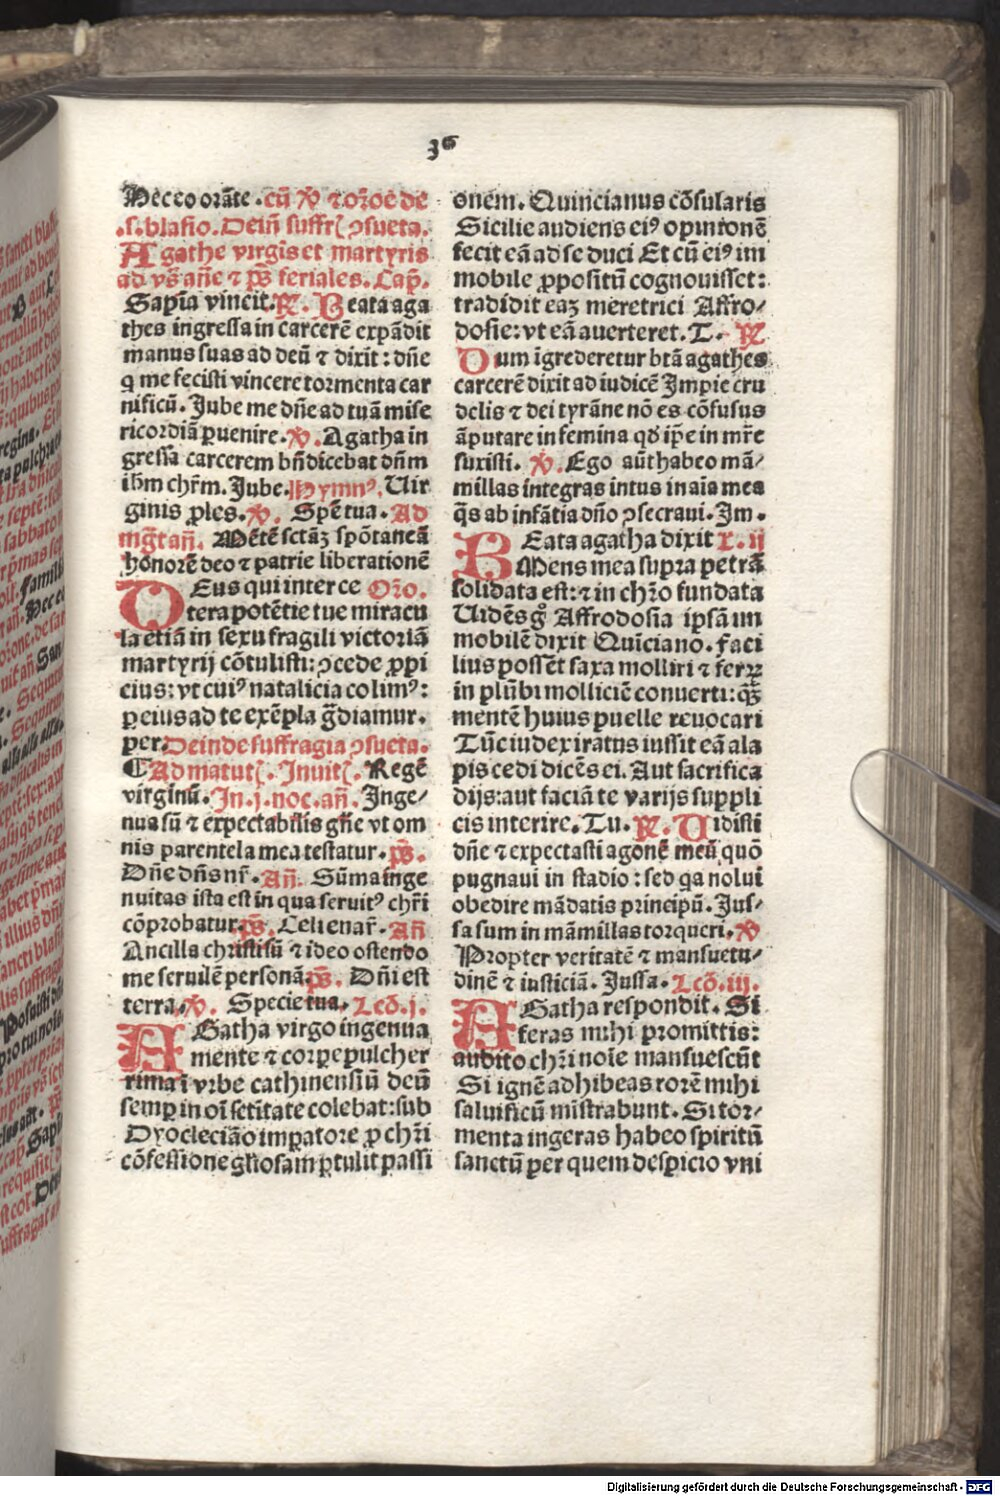 36
Hec eo orãte .cũ ꝟ ⁊ orõe de
.s. blasio. Dein̄ suffrſ ɔsueta.
Agathe virgis et martyris
ad vs̃ añe ⁊ pš feriales. Cap̃.
Sapĩa vincit. ꝶ. Beata aga
thes ingressa in carcerē expãdit
manus suas ad deũ ⁊ dixit : dñe
q me fecisti vincere tormenta car
nificũ. Jube me dñe ad tuã mise
ricordiã ꝑuenire. ꝟ. Agatha in
gressa carcerem bñdicebat dñm
ihm chr̃m. Jube. Hymnꝰ. Uir
ginis ꝓles. ꝟ. Spẽ tua. Ad
mg̃t añ. Mẽtē sctãʒ spõtaneã
honorē deo ⁊ patrie liberationē
DEus qui inter ce Orõ.
tera potẽtie tue miracu
la etiã in sexu fragili victoriã
martyrij cõtulisti: ɔcede ꝓpi
cius: vt cuiꝰ natalicia colimꝰ:
ꝑ eius ad te exẽpla g̃diamur.
per. Deinde suffragia ɔsueta.
¶ Ad matutſ. Inuitſ. Regē
virginũ. In .j. noc. añ. Inge⸗
nua sũ ⁊ expectabilis gñe vt om
nis parentela mea testatur. pš.
Dñe dñs nr̃. Añ. Sũma inge
nuitas ista est in qua seruitꝰ chr̃i
cõprobatur. pš. Celi enar̃. Añ
Ancilla christi sũ ⁊ ideo ostendo
me seruilē personã. pš. Dñi est
terra. ꝟ. Specie tua. Lcõ. j.
AGatha virgo ingenua
mente ⁊ corpe pulcher
rima ĩ vrbe cathinensiũ deũ
semꝑ in oĩ sctitate colebat: sub
Dyoclecião imꝑatore ꝓ chr̃i
cõfessione gl̃iosam ꝑtulit passi
onem. Quincianus cõsularis
Sicilie audiens eiꝰ opinionē
fecit eã ad se duci Et cũ eiꝰ im
mobile ꝓpositũ cognouisset:
tradidit eaʒ meretrici Affro⸗
dosie: vt eã auerteret. T. ꝶ
Dum ĩgrederetur btã agathes
carcerē dixit ad iudicē Impie cru
delis ⁊ dei tyrãne nõ es cõfusus
ãputare in femina qđ ip̃e in mr̃e
suxisti. ꝟ. Ego aũt habeo mã⸗
millas integras intus in aĩa mea
q̃s ab infãtia dño ɔsecraui. Im.
BEata agatha dixit L. ij
Mens mea supra petrã
solidata est: ⁊ in chr̃o fundata
Uidẽs g̊ Affrodosia ipsã im
mobilē dixit Quĩciano. Faci
lius possēt saxa molliri ⁊ ferrꝝ
in plũbi molliciē conuerti: q̃ʒ
mentē huius puelle reuocari
Tũc iudex iratus iussit eã ala
pis cedi dicẽs ei. Aut sacrifica
dijs: aut faciã te varijs suppli
cis interire. Tu. ꝶ. Uidisti
dñe ⁊ expectasti agonē meũ quõ
pugnaui in stadio : sed qa nolui
obedire mãdatis principũ. Jus⸗
sa sum in mãmillas torqueri. ꝟ
Propter veritatē ⁊ mansuetu⸗
dinē ⁊ iusticiã. Jussa. Lcõ. iij.
AGatha respondit. Si
feras mihi promittis:
audito chr̃i noĩe mansuescũt
Si ignē adhibeas rorē mihi
saluificũ mĩstrabunt. Si tor⸗
menta ingeras habeo spiritũ
sanctũ per quem despicio vni